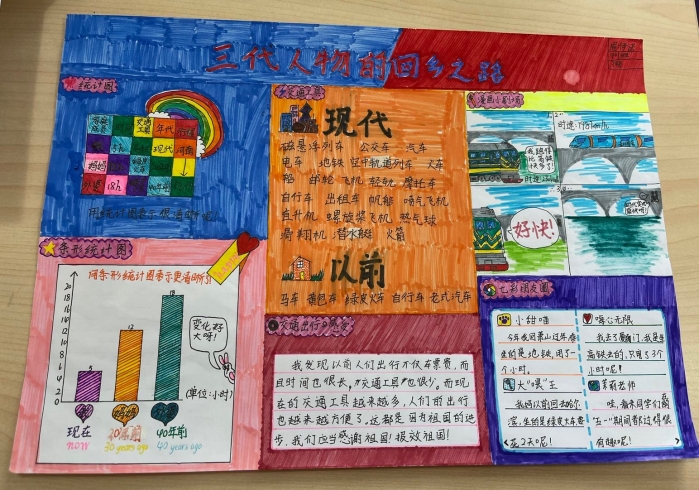 三代人物的回乡之路
统计图
交通工具
年代
5h
现代
河南
妈妈
18h
用统计图表示很清晰呢!
现代
磁悬浮列车 公交车 汽车
电车 地铁 空中轨道列车 火车
船 邮轮 飞机 轻轨 摩托车
自行车 出租车 帆船 喷气飞机
直升机 螺旋桨飞机 热气球
滑翔机 潜水艇 火箭
以前
马车 黄包车 绿皮火车 自行车 老式汽车
漫画小剧场
好快!
条形统计图
用条形统计图表示更清晰
20
18
16
14
12
10
8
6
4
2
0
5
13
18
变化好
大呀!
(单位:小时)
妈妈
现在
40年前
now
30 years ago
40 years ago
我发现以前人们出行不仅车票贵,而
且时间也很长,交通工具也很少,而现
在的交通工具越来越多,人们的出行
也越来越方便了,这都是因为祖国的进
步,我们应当感谢祖国!报效祖国!
七彩朋友圈
小甜哇
开心无限
坐的是地铁,用了一
个小时。
高铁去的,只用了3个
小时呢!
花2天呢!
老师
哇,看来同学们
五一期间都过得很
有趣呢!